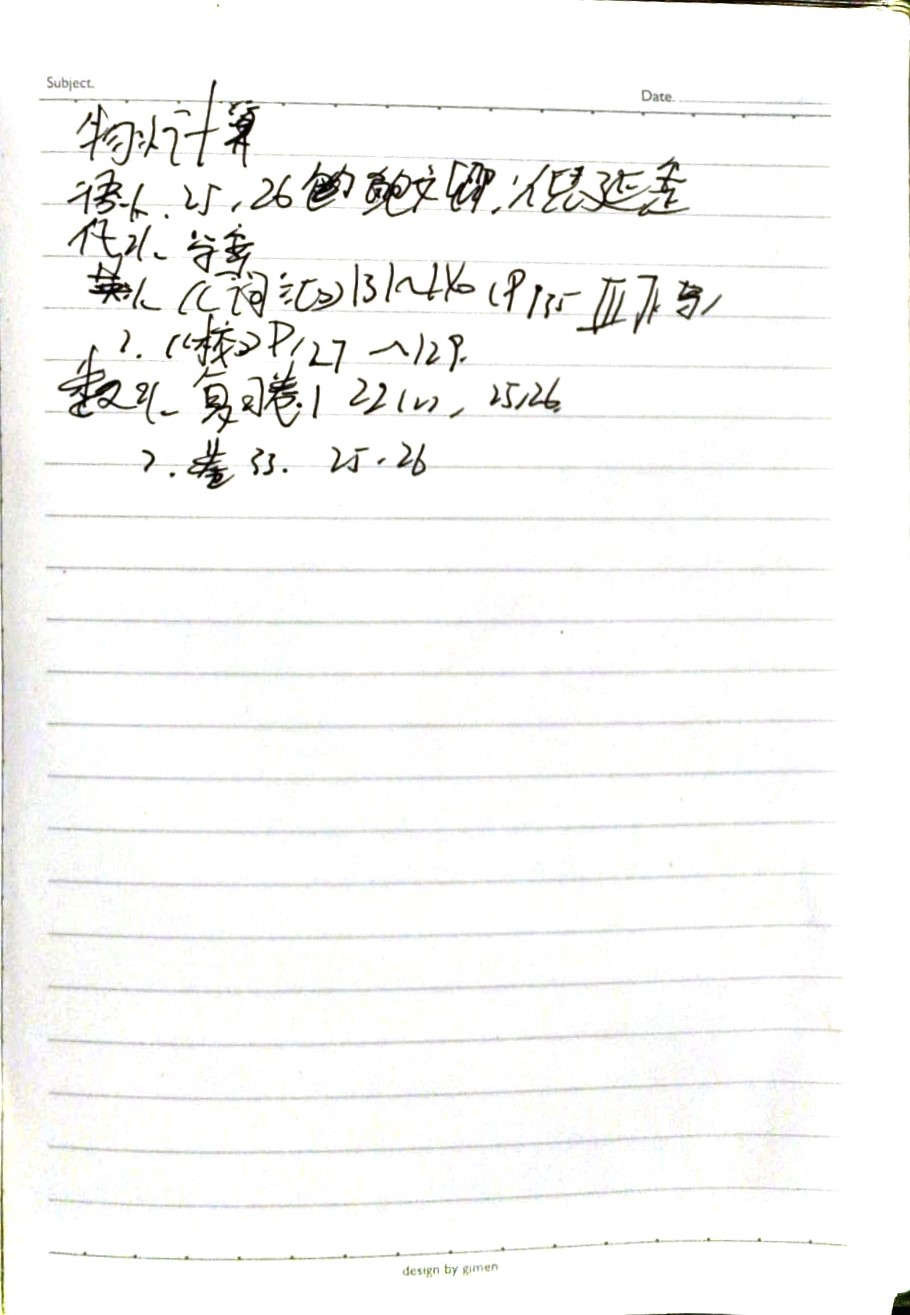 Subject.
Date.
物: 计算
语1. 25, 26
化1.
英1. 《词汇》131~140 (P135 III 不写)
2. 《核》P127~129.
数1. 复习卷1 22(2), 25,26.
2. 卷33. 25.26
design by gimen